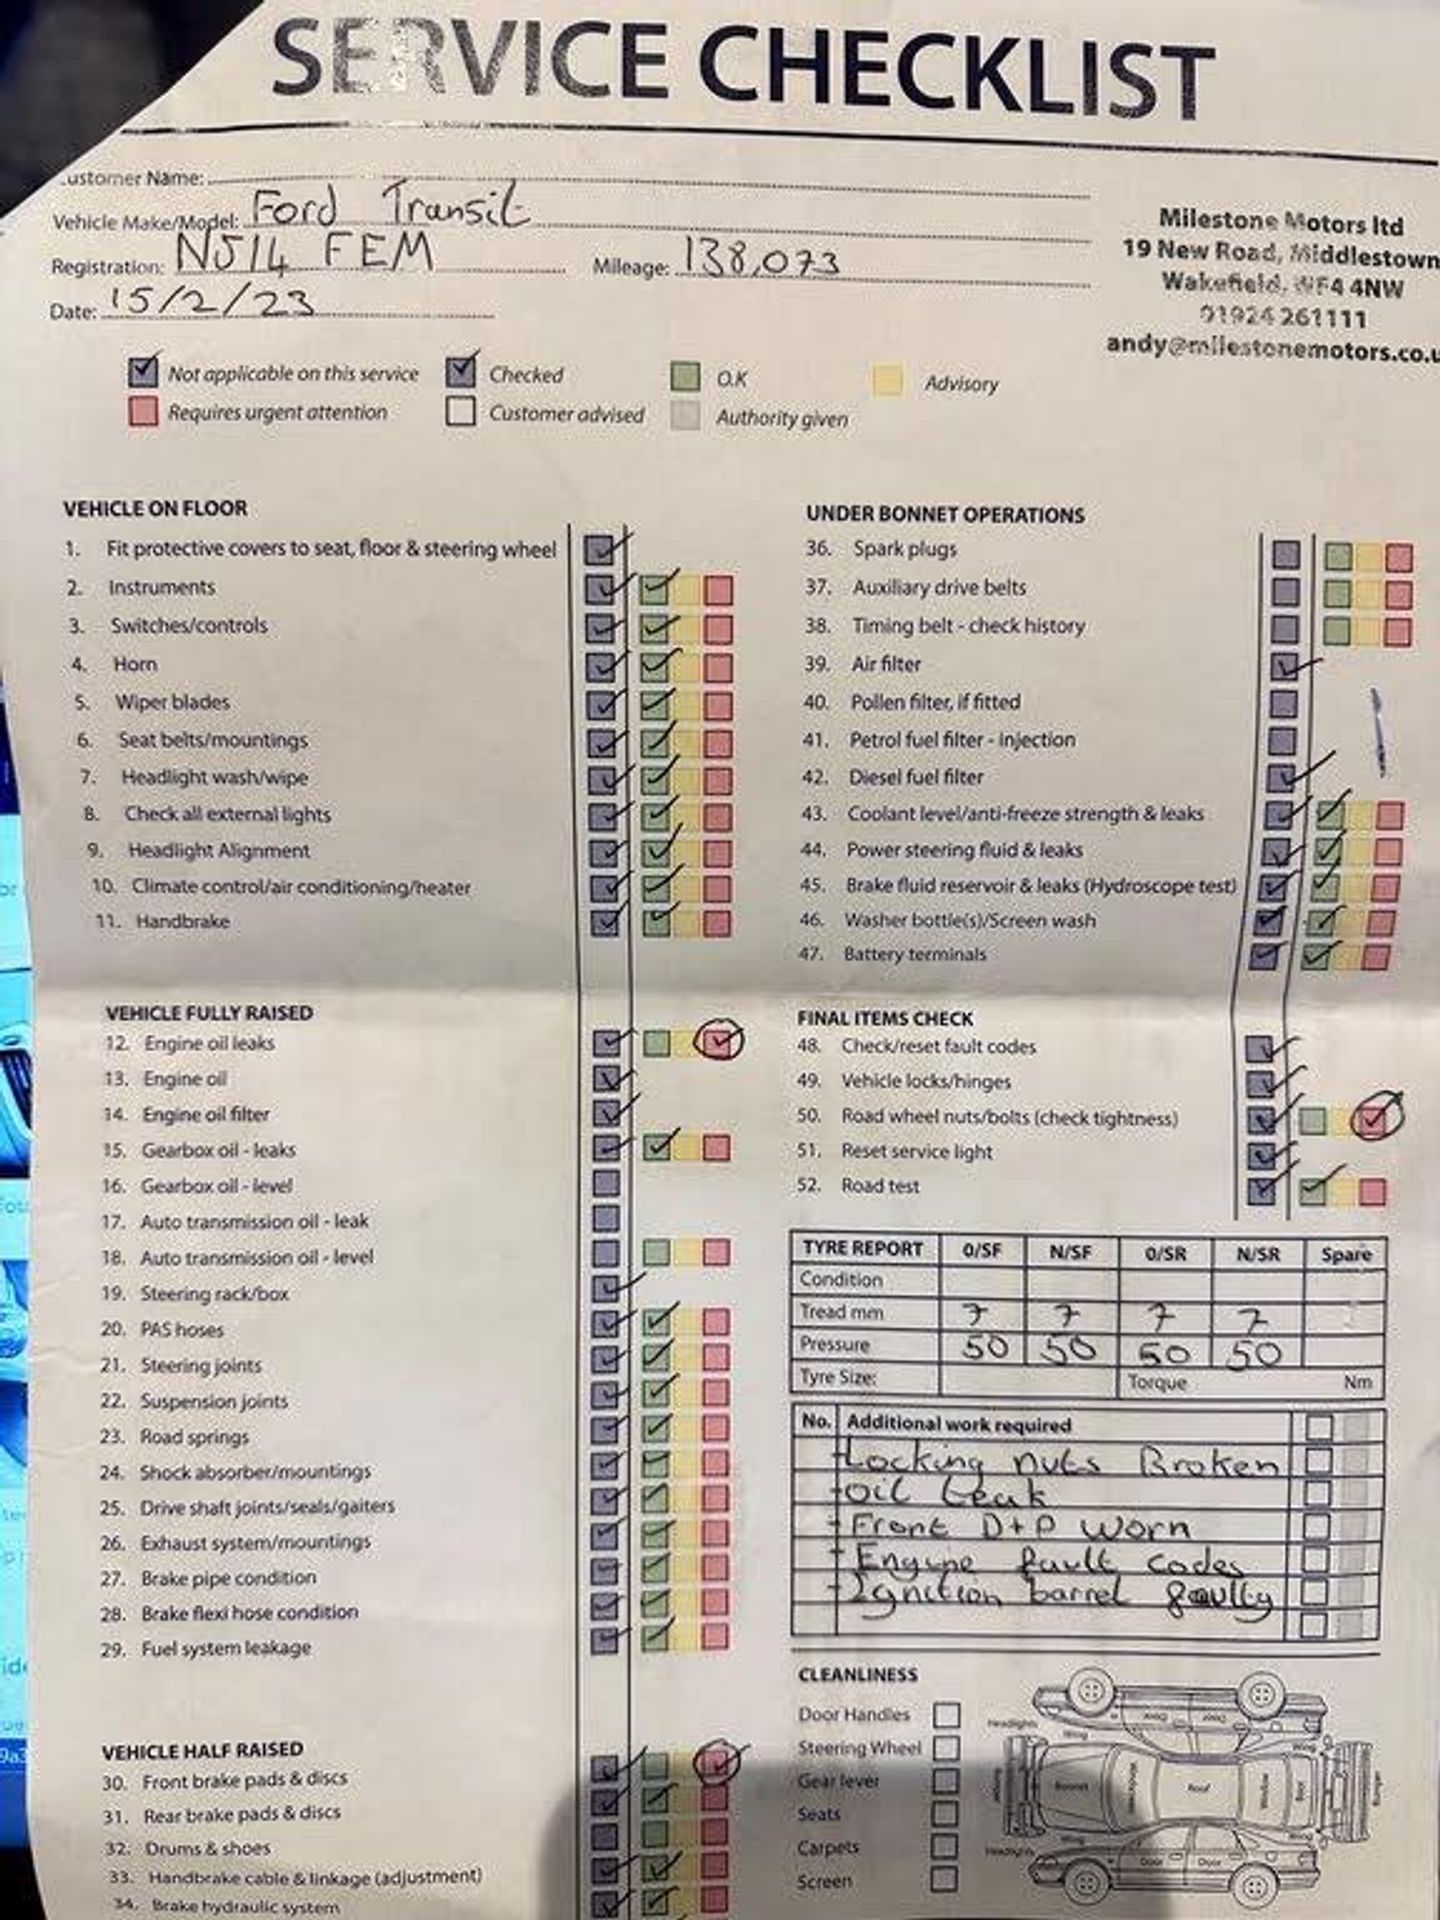 SERVICE CHECKLIST
ustomer Name:
Vehicle Make/Model: Ford Transit
Registration: NJ14 FEM Mileage: 138,073
Date: 15/2/23
Milestone Motors ltd
19 New Road, Middlestown
Wakefield, WF4 4NW
01924 261111
andy@milestonemotors.co.u
Not applicable on this service Checked O.K Advisory
Requires urgent attention Customer advised Authority given
VEHICLE ON FLOOR
1. Fit protective covers to seat, floor & steering wheel
2. Instruments
3. Switches/controls
4. Horn
5. Wiper blades
6. Seat belts/mountings
7. Headlight wash/wipe
8. Check all external lights
9. Headlight Alignment
10. Climate control/air conditioning/heater
11. Handbrake
VEHICLE FULLY RAISED
12. Engine oil leaks
13. Engine oil
14. Engine oil filter
15. Gearbox oil - leaks
16. Gearbox oil - level
17. Auto transmission oil - leak
18. Auto transmission oil - level
19. Steering rack/box
20. PAS hoses
21. Steering joints
22. Suspension joints
23. Road springs
24. Shock absorber/mountings
25. Drive shaft joints/seals/gaiters
26. Exhaust system/mountings
27. Brake pipe condition
28. Brake flexi hose condition
29. Fuel system leakage
VEHICLE HALF RAISED
30. Front brake pads & discs
31. Rear brake pads & discs
32. Drums & shoes
33. Handbrake cable & linkage (adjustment)
34. Brake hydraulic system
UNDER BONNET OPERATIONS
36. Spark plugs
37. Auxiliary drive belts
38. Timing belt - check history
39. Air filter
40. Pollen filter, if fitted
41. Petrol fuel filter - injection
42. Diesel fuel filter
43. Coolant level/anti-freeze strength & leaks
44. Power steering fluid & leaks
45. Brake fluid reservoir & leaks (Hydroscope test)
46. Washer bottle(s)/Screen wash
47. Battery terminals
FINAL ITEMS CHECK
48. Check/reset fault codes
49. Vehicle locks/hinges
50. Road wheel nuts/bolts (check tightness)
51. Reset service light
52. Road test
TYRE REPORT O/SF N/SF O/SR N/SR Spare
Condition
Tread mm 7 7 7 7
Pressure 50 50 50 50
Tyre Size: Torque Nm
No. Additional work required
- Locking nuts Broken
- oil leak
- Front D+P worn
- Engine fault codes
- Ignition barrel faulty
CLEANLINESS
Door Handles
Steering Wheel
Gear lever
Seats
Carpets
Screen
Headlights Wing Door Door
Wing
Bonnet Windscreen Roof Window Boot Bumper
Headlights Wing Wing
Door Door